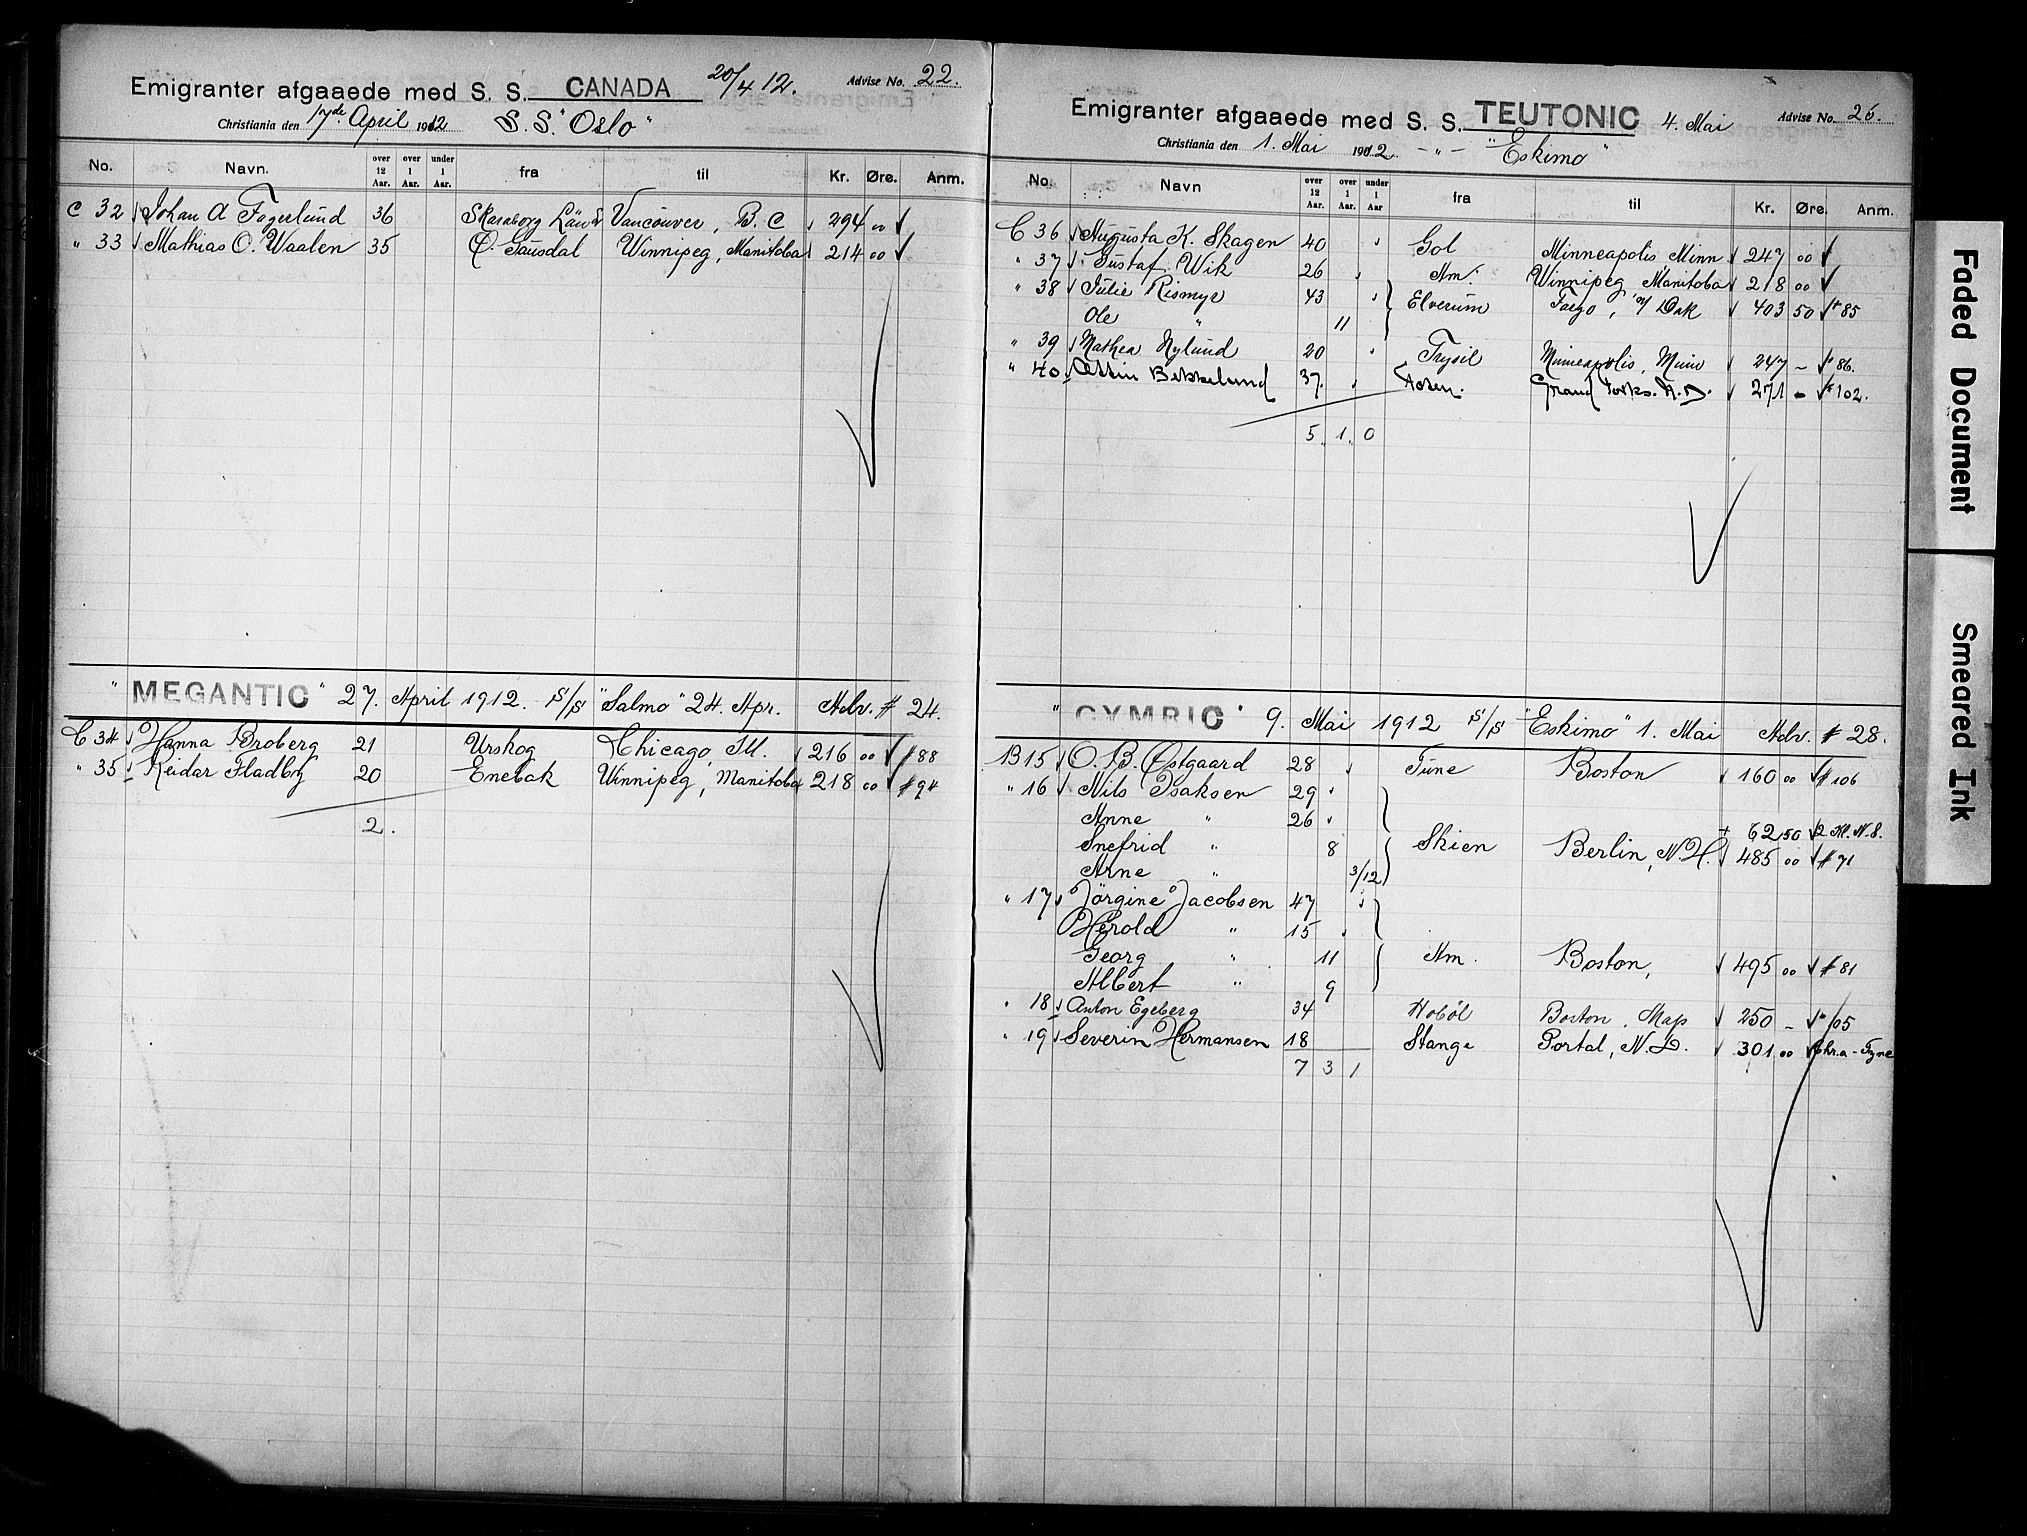 Emigranter afgaaede med S. S. CANADA 20/4 12. Advise No. 22.
Christiania den 17de April 1912 S. S. "Oslo"
No. Navn. over 12 Aar. over 1 Aar. under 1 Aar. fra til Kr. Øre. Anm.
C 32 Johan A Fagerlund 36 Skaraborg Län S Vancouver, B. C 294 00
" 33 Mathias O. Waalen 35 Ø. Gausdal Winnipeg, Manitoba 214 00
"MEGANTIC" 27. April 1912. S/S "Salmo" 24. Apr. Adv. # 24.
C 34 Hanna Broberg 21 Urskog Chicago, Ill. 216 00 # 88
" 35 Reidar Fladby 20 Enebak Winnipeg, Manitoba 218 00 # 94
2.
Emigranter afgaaede med S. S. TEUTONIC 4. Mai Advise No. 26.
Christiania den 1. Mai 1912 - " - "Eskimo"
No. Navn over 12 Aar. over 1 Aar. under 1 Aar fra til Kr. Øre. Anm.
C 36 Augusta K. Skagen 40 Gol Minneapolis Minn 247 00
" 37 Gustaf Wik 26 Am. Winnipeg Manitoba 218 00
" 38 Julie Rismyr 43 Elverum Fargo, N Dak 403 50 # 85
Ole " 11
" 39 Mathea Nylund 20 Trysil Minneapolis, Minn 247 - # 86.
" 40 Bekkelund 37. Grand Forks. N. D. 271 - # 102.
5. 1. 0
"CYMRIC" 9. Mai 1912 S/S "Eskimo" 1. Mai Adv. # 28.
B 15 O. B. Østgaard 28 Tune Boston 160 00 # 106
" 16 Nils Isaksen 29
Anne " 26
+ 62 50 2 Kl. N.S.
Snefrid " 8 Skien Berlin, N. H. 485 00 # 71
Arne " 3/12
" 17 Jörgine Jacobsen 47
Herold " 15
Georg " 11 Am. Boston, 495 00 # 81
Albert " 9
" 18 Anton Egeberg 34 Hoböl Boston. Mass 250 - # 105
" 19 Severin Hermansen 18 Stange Portal, N. D. 301 00 Chr.a - Tyne
7 3 1
Faded Document
Smeared Ink